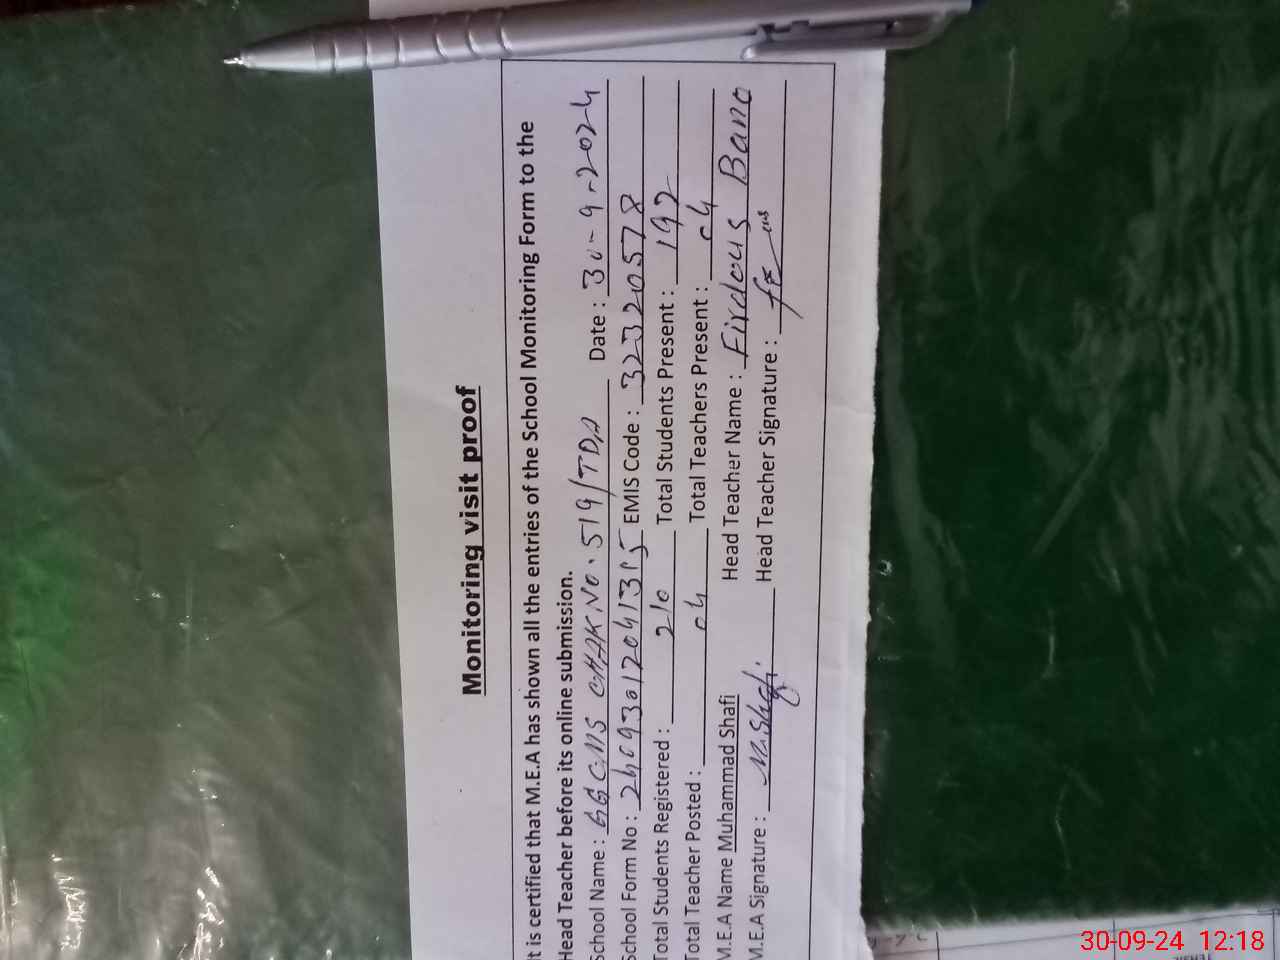 Monitoring visit proof
It is certified that M.E.A has shown all the entries of the School Monitoring Form to the
Head Teacher before its online submission.
School Name : GGCMS CHAK NO. 519/TDA Date : 30-9-2024
School Form No : EMIS Code : 32320578
Total Students Registered : 210 Total Students Present : 192
Total Teacher Posted : 04 Total Teachers Present : 04
M.E.A Name Muhammad Shafi Head Teacher Name : Firdous Bano
M.E.A Signature : M.Shafi. Head Teacher Signature :
30-09-24 12:18